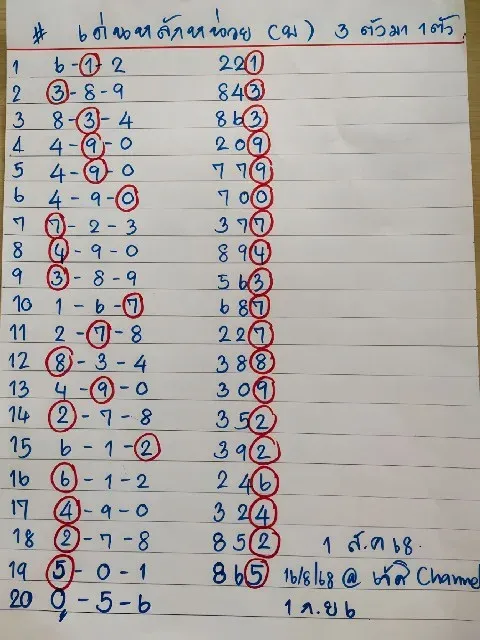 # เด่นหลักหน่วย (บ) 3 ตัวมา 1 ตัว
1 6-1-2 221
2 3-8-9 843
3 8-3-4 863
4 4-9-0 209
5 4-9-0 779
6 4-9-0 700
7 7-2-3 377
8 4-9-0 894
9 3-8-9 563
10 1-6-7 687
11 2-7-8 227
12 8-3-4 388
13 4-9-0 309
14 2-7-8 352
15 6-1-2 392
16 6-1-2 246
17 4-9-0 324
18 2-7-8 852 1 ส.ค 68.
19 5-0-1 865 16/8/68 @ Channel
20 0-5-6 1 ก.ย 6